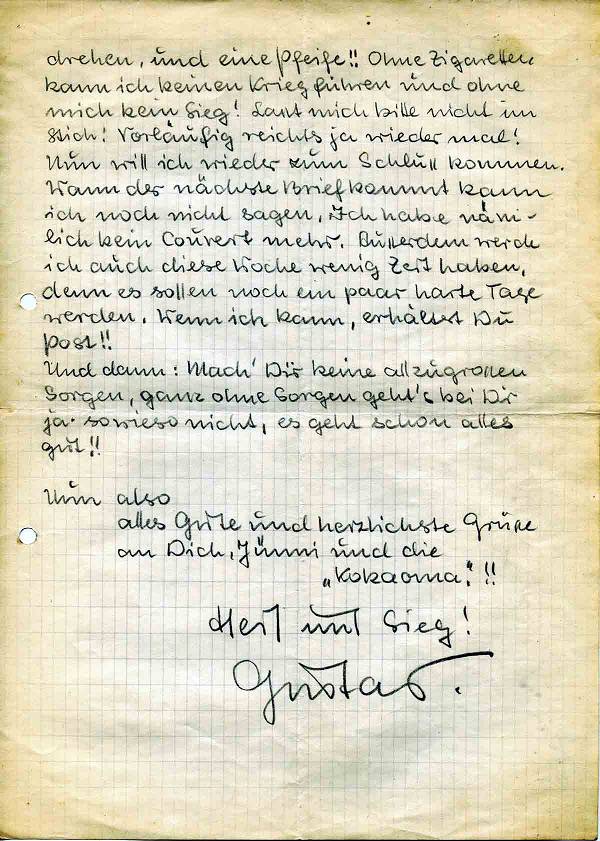 drehen, und eine Pfeife!! Ohne Zigaretten
kann ich keinen Krieg führen und ohne
mich kein Sieg! Lasst mich bitte nicht im
Stich! Vorläufig reichts ja wieder mal!
Nun will ich wieder zum Schluss kommen.
Wann der nächste Brief kommt kann
ich noch nicht sagen, ich habe näm-
lich kein Couvert mehr. Ausserdem werde
ich auch diese Woche wenig Zeit haben,
denn es sollen noch ein paar harte Tage
werden. Wenn ich kann, erhältst Du
Post!!
Und dann: Mach' Dir keine allzugrossen
Sorgen, ganz ohne Sorgen geht's bei Dir
ja sowieso nicht, es geht schon alles
gut!!
Nun also
alles Gute und herzlichste Grüsse
an Dich, Jünni und die
„Kokaoma"!!
Heil und Sieg!
Gustav.